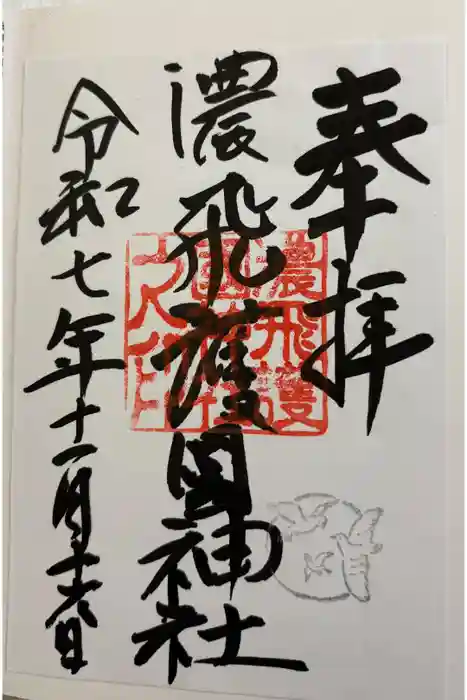 奉拝
濃飛護國神社
令和七年十一月十六日
濃飛護
國神社
之印